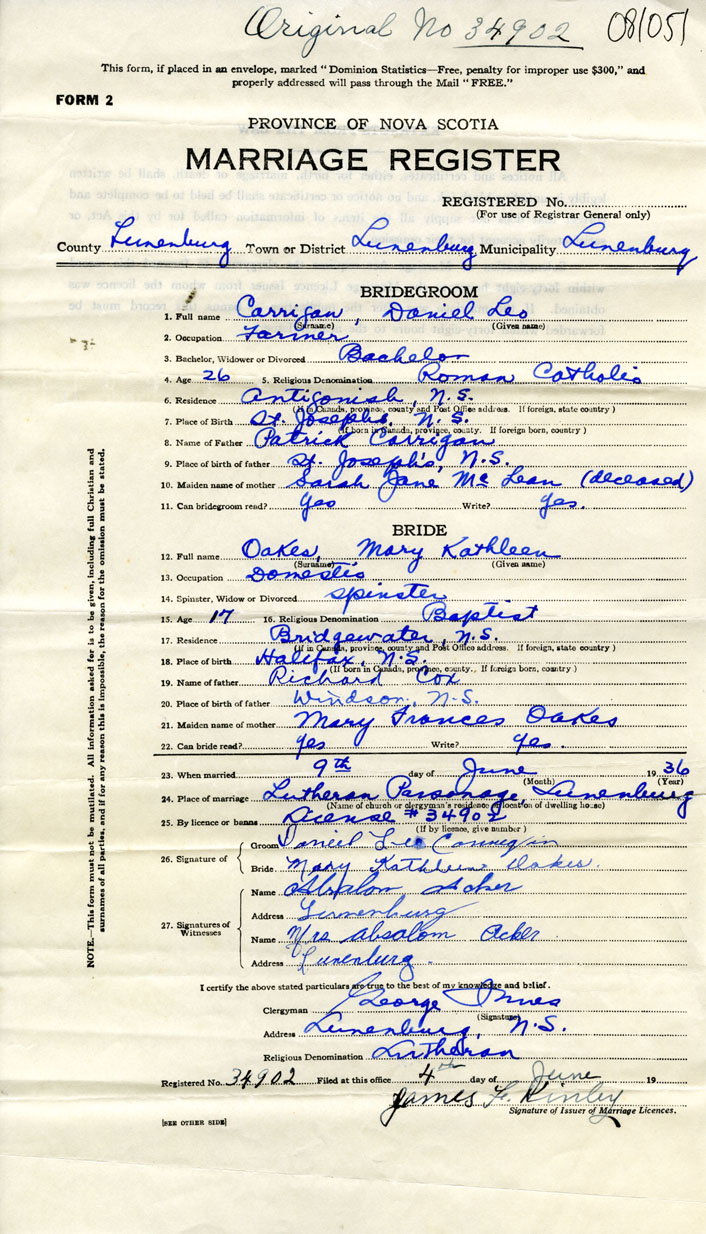 Original No 34902 08/051
This form, if placed in an envelope, marked "Dominion Statistics—Free, penalty for improper use $300," and
properly addressed will pass through the Mail "FREE."
FORM 2
PROVINCE OF NOVA SCOTIA
MARRIAGE REGISTER
REGISTERED No.
(For use of Registrar General only)
County Lunenburg Town or District Lunenburg Municipality Lunenburg
BRIDEGROOM
1. Full name Carrigan, Daniel Leo
(Surname) (Given name)
2. Occupation Farmer
3. Bachelor, Widower or Divorced Bachelor
4. Age 26 5. Religious Denomination Roman Catholic
6. Residence Antigonish, N.S.
(If in Canada, province, county and Post Office address. If foreign, state country)
7. Place of Birth St. Joseph's, N.S.
(If born in Canada, province, county. If foreign born, country)
8. Name of Father Patrick Carrigan
9. Place of birth of father St. Joseph's, N.S.
10. Maiden name of mother Sarah Jane McLean (deceased)
11. Can bridegroom read? Yes Write? Yes.
BRIDE
12. Full name Oakes, Mary Kathleen
(Surname) (Given name)
13. Occupation Domestic
14. Spinster, Widow or Divorced Spinster
15. Age 17 16. Religious Denomination Baptist
17. Residence Bridgewater, N.S.
(If in Canada, province, county and Post Office address. If foreign, state country)
18. Place of birth Halifax, N.S.
(If born in Canada, province, county., If foreign born, country)
19. Name of father Richard Cox
20. Place of birth of father Windsor, N.S.
21. Maiden name of mother Mary Frances Oakes
22. Can bride read? Yes Write? Yes.
23. When married 9th day of June 1936
(Month) (Year)
24. Place of marriage Lutheran Parsonage, Lunenburg
(Name of church or clergyman's residence or location of dwelling house)
25. By licence or banns License #34902
(If by licence, give number)
26. Signature of
Groom Daniel Leo
Bride Mary Kathleen Oakes.
27. Signatures of Witnesses
Name Absalom Acker
Address Lunenburg
Name Mrs Absalom Acker
Address Lunenburg.
I certify the above stated particulars are true to the best of my knowledge and belief.
Clergyman George Innes
(Signature)
Address Lunenburg, N.S.
Religious Denomination Lutheran
Registered No. 34902 Filed at this office 4th day of June 19
James F. Kinley
Signature of Issuer of Marriage Licences.
[SEE OTHER SIDE]
NOTE.—This form must not be mutilated. All information asked for is to be given, including full Christian and
surnames of all parties, and if for any reason this is impossible, the reason for the omission must be stated.